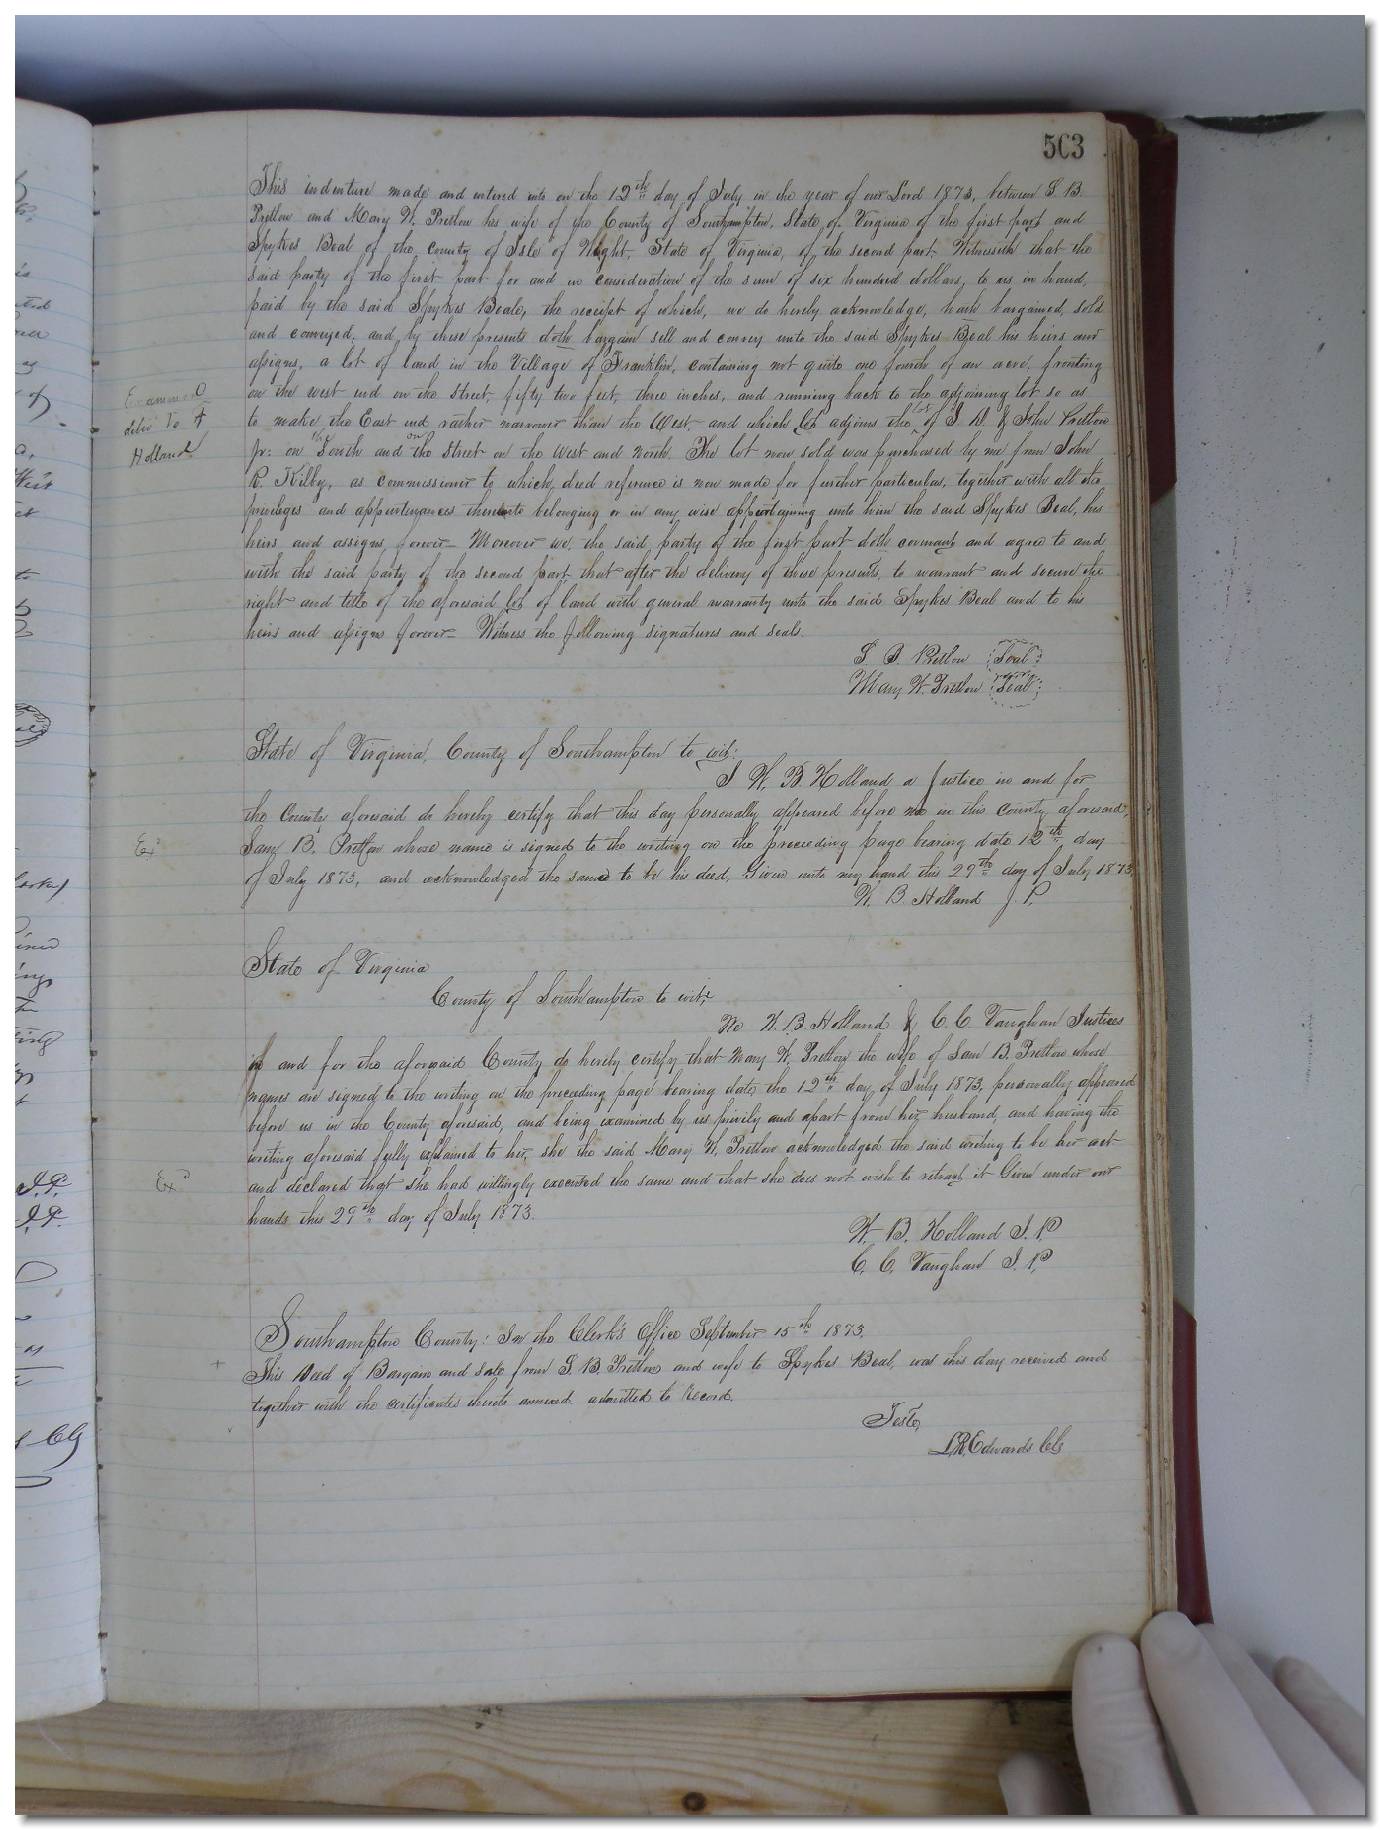 503
This indenture made and entered into on the 12th day of July in the year of our Lord 1873, between S. B.
Pretlow and Mary W. Pretlow his wife of the County of Southampton, State of Virginia of the first part and
Spykes Beal of the County of Isle of Wight, State of Virginia, of the second part, Witnesseth that the
said party of the first part for and in consideration of the sum of six hundred dollars, to us in hand,
paid by the said Spykes Beale, the receipt of which, we do hereby acknowledge, hath bargained, sold
and conveyed, and by these presents doth bargain sell and convey unto the said Spykes Beal his heirs and
assigns, a lot of land in the Village of Franklin, containing not quite one fourth of an acre, fronting
on the west end on the street, fifty two feet, three inches, and running back to the adjoining lot so as
Examined
to make the East end rather narrower than the West, and which lot adjoins the lot of S. & John Pretlow
deliv'd To
Jr: on the South and the street on the West and North. The lot now sold was purchased by me from John
Holland
R. Kilby, as commissioner to which deed reference is now made for further particulars, together with all the
privileges and appurtenances thereunto belonging or in any wise appertaining unto him the said Spykes Beal, his
heirs and assigns forever— Moreover we, the said party of the first part doth covenant and agree to and
with the said party of the second part that after the delivery of these presents, to warrant and secure the
right and title of the aforesaid lot of land with general warranty unto the said Spykes Beal and to his
heirs and assigns forever— Witness the following signatures and seals.
S. B. Pretlow Seal
Mary W. Pretlow Seal
State of Virginia, County of Southampton to wit:
I W. B. Holland a Justice in and for
the County aforesaid do hereby certify that this day personally appeared before me in this County aforesaid,
Ex'd
Sam'l B. Pretlow whose name is signed to the writing on the preceeding page bearing date 12th day
of July 1873, and acknowledged the same to be his deed, Given unto my hand this 29th day of July 1873.
W. B. Holland J. P.
State of Virginia
County of Southampton to wit:
We W. B. Holland & C. C. Vaughan Justices
in and for the aforesaid County do hereby certify that Mary W. Pretlow the wife of Sam B. Pretlow whose
names are signed to the writing on the preceeding page bearing date the 12th day of July 1873, personally appeared
before us in the County aforesaid, and being examined by us privily and apart from her husband, and having the
writing aforesaid fully explained to her, she the said Mary W. Pretlow acknowledged the said writing to be her act
Ex'd
and declared that she had willingly executed the same and that she does not wish to retract it Given under our
hands this 29th day of July 1873.
W. B. Holland J. P.
C. C. Vaughan J. P.
Southampton County: In the Clerk's Office September 15th 1873.
This Deed of Bargain and sale from S. B. Pretlow and wife to Spykes Beal, was this day received and
together with the certificates thereto annexed admitted to Record.
Teste,
L. R. Edwards Clk